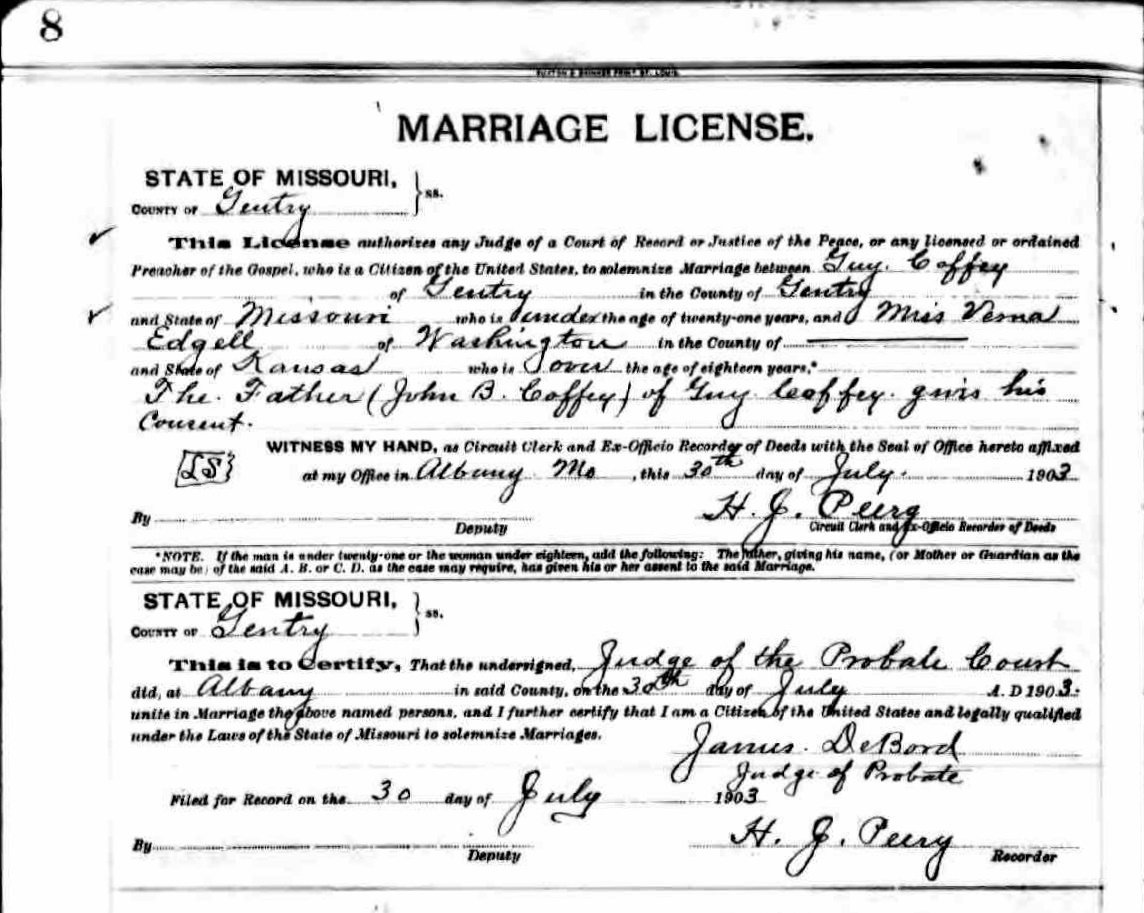 8
BUXTON & SKINNER PRINT ST. LOUIS.
MARRIAGE LICENSE.
STATE OF MISSOURI, } ss.
COUNTY OF Gentry
This License authorizes any Judge of a Court of Record or Justice of the Peace, or any licensed or ordained
Preacher of the Gospel, who is a Citizen of the United States, to solemnize Marriage between Guy. Coffey
of Gentry in the County of Gentry
and State of Missouri who is under the age of twenty-one years, and Miss Verna
Edgell of Washington in the County of
and State of Kansas who is over the age of eighteen years,*
The. Father (John B. Coffey) of Guy Coffey. givis his
Consent.
WITNESS MY HAND, as Circuit Clerk and Ex-Officio Recorder of Deeds with the Seal of Office hereto affixed
[LS] at my Office in Albany Mo, this 30th day of July. 1903
By Deputy H. J. Peery
Circuit Clerk and Ex-Officio Recorder of Deeds
*NOTE. If the man is under twenty-one or the woman under eighteen, add the following: The father, giving his name, (or Mother or Guardian as the
case may be) of the said A. B. or C. D. as the case may require, has given his or her assent to the said Marriage.
STATE OF MISSOURI, } ss.
COUNTY OF Gentry
This is to Certify, That the undersigned, Judge of the Probate Court
did, at Albany in said County, on the 30th day of July A. D 1903.
unite in Marriage the above named persons, and I further certify that I am a Citizen of the United States and legally qualified
under the Laws of the State of Missouri to solemnize Marriages.
James. DeBord
Judge of Probate
Filed for Record on the 30 day of July 1903
By Deputy H. J. Peery Recorder